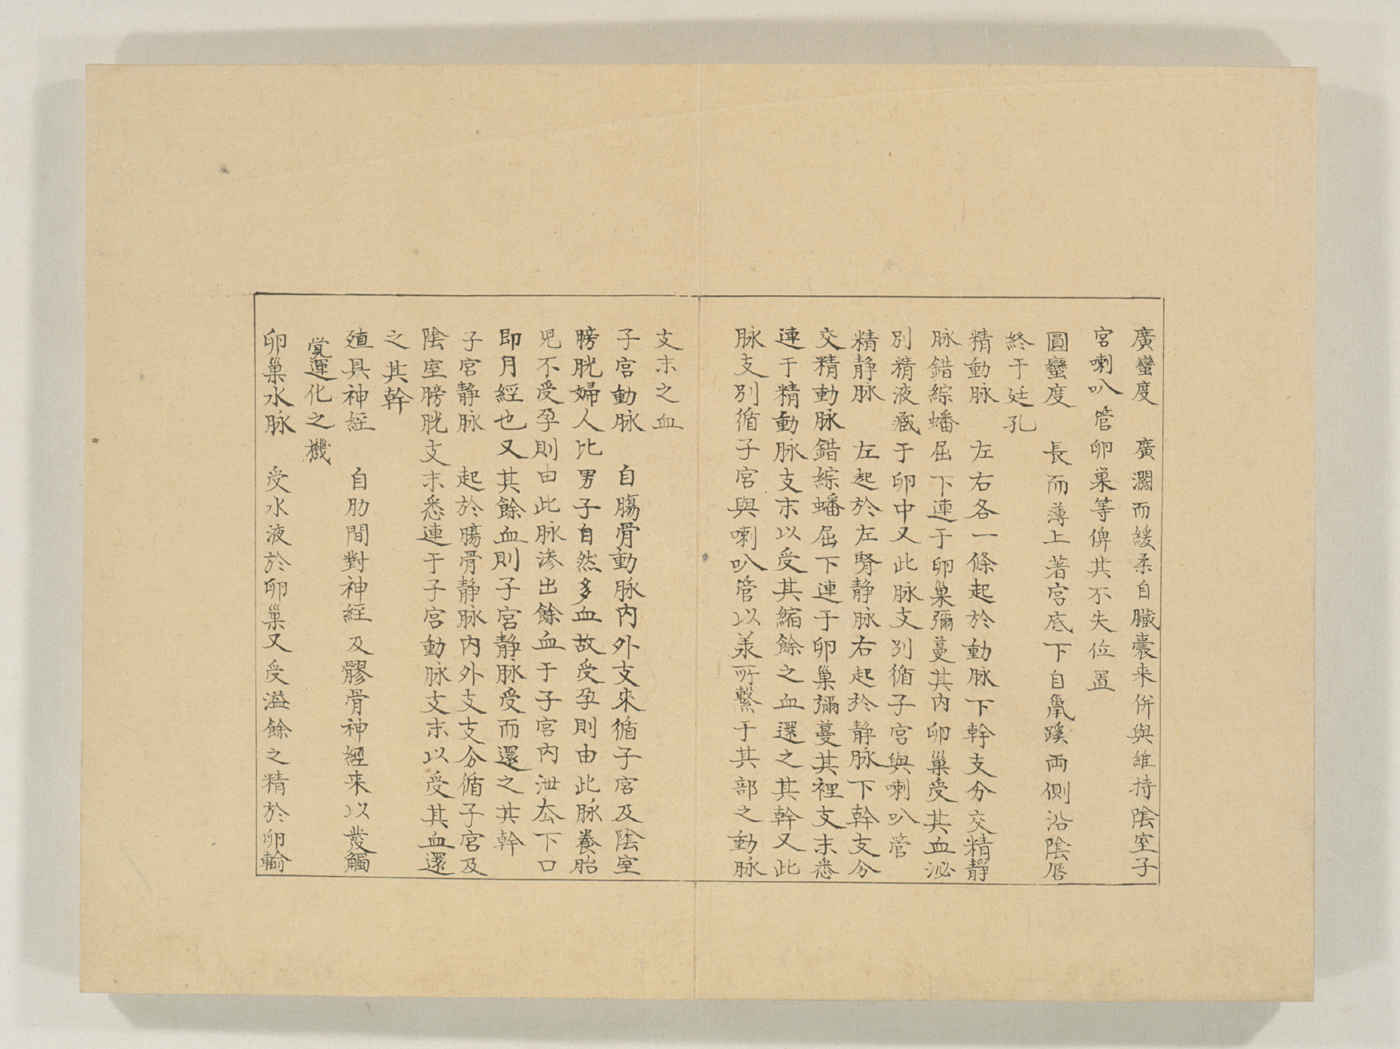 廣蠻度　廣濶而緩柔自臟囊来併與維持陰室子
宮喇叭管卵巢等俾其不失位置
圓蠻度　長而薄上著宮底下自鼠蹊両側沿陰唇
終于廷孔
精動脉　左右各一條起於動脉下幹支分交精靜
脉錯綜蟠屈下連于卵巢彌蔓其内卵巢受其血泌
別精液藏于卵中又此脉支別循子宮與喇叭管
精静脉　左起於左腎静脉右起於静脉下幹支分
交精動脉錯綜蟠屈下連于卵巢彌蔓其裡支末悉
連于精動脉支末以受其縮餘之血還之其幹又此
脉支別循子宮與喇叭管以羕所繫于其部之動脉
支末之血
子宮動脉　自膓骨動脉内外支來循子宮及陰室
膀胱婦人比男子自然多血故受孕則由此脉養胎
児不受孕則由此脉滲出餘血于子宮内泄厺下口
即月經也又其餘血則子宮静脉受而還之其幹
子宮静脉　起於膓骨静脉内外支支分循子宮及
陰室膀胱支末悉連于子宮動脉支末以受其血還
之其幹
殖具神経　自肋間對神経及髎骨神經来以發觸
覚運化之機
卵巢水脉　受水液於卵巢又受溢餘之精於卵輸